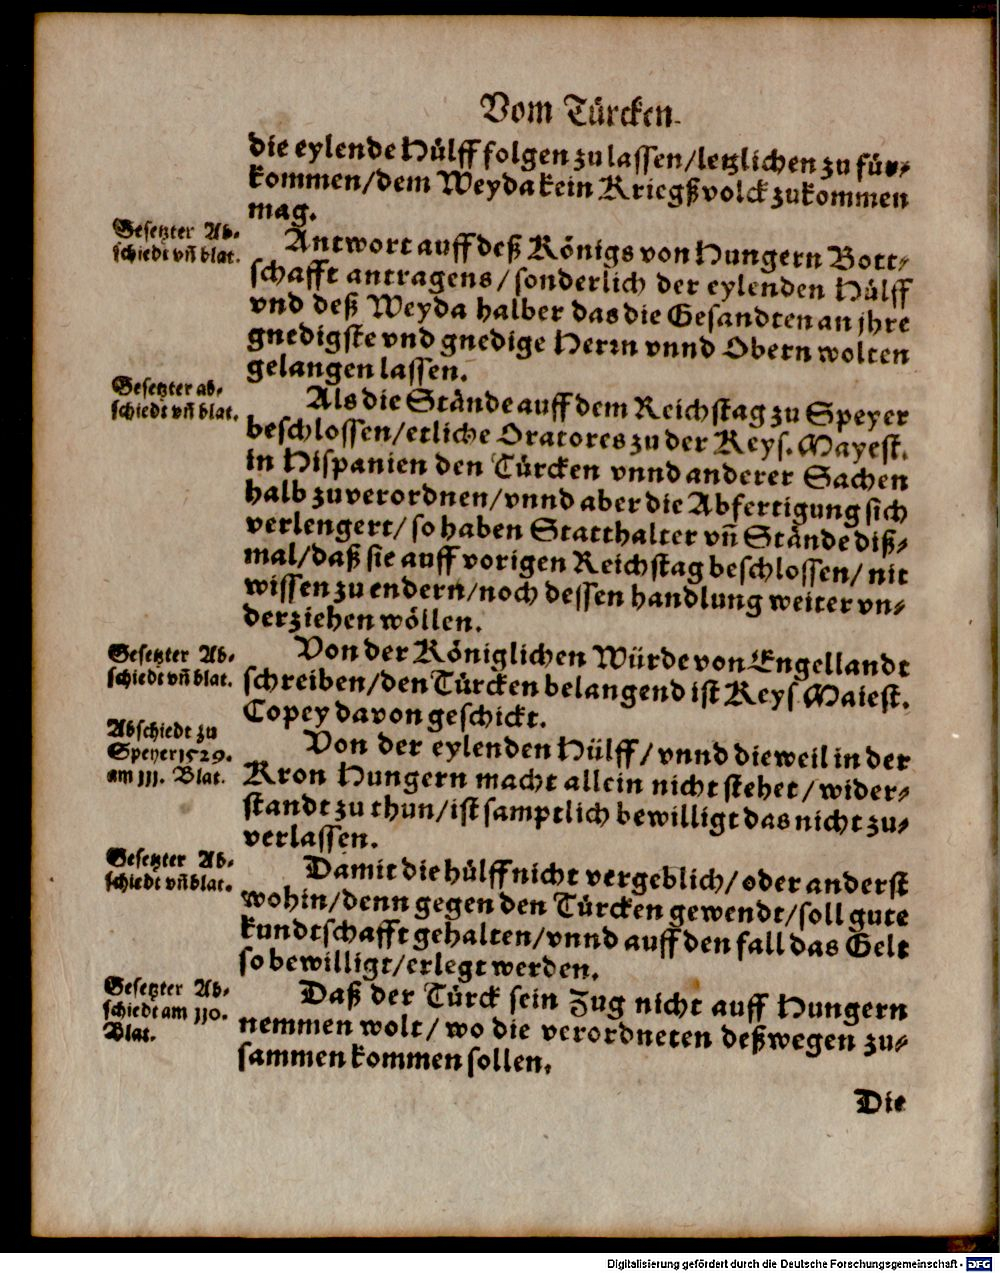 Vom Türcken.
die eylende Hülff folgen zu lassen/letzlichen zu für-
kommen/dem Weyda kein Kriegßvolck zukommen
mag.
Gesetzter Ab-
schiedt vñ blat.
Antwort auff deß Königs von Hungern Bott-
schafft antragens/sonderlich der eylenden Hülff
vnd deß Weyda halber das die Gesandten an jhre
gnedigste vnd gnedige Herrn vnnd Obern wolten
gelangen lassen.
Gesetzter ab-
schiedt vñ blat.
Als die Stände auff dem Reichstag zu Speyer
beschlossen/etliche Oratores zu der Keys. Mayest.
in Hispanien den Türcken vnnd anderer Sachen
halb zuverordnen/vnnd aber die Abfertigung sich
verlengert/so haben Statthalter vñ Stände diß-
mal/daß sie auff vorigen Reichstag beschlossen/nit
wissen zu endern/noch dessen handlung weiter vn-
derziehen wöllen.
Gesetzter Ab-
schiedt vñ blat.
Von der Königlichen Würde von Engellandt
schreiben/den Türcken belangend ist Keys Maiest.
Copey davon geschickt.
Abschiedt zu
Speyer 1529.
am 111. Blat.
Von der eylenden Hülff/vnnd dieweil in der
Kron Hungern macht allein nicht stehet/wider-
standt zu thun/ist samptlich bewilligt das nicht zu-
verlassen.
Gesetzter Ab-
schiedt vñ blat.
Damit die hülff nicht vergeblich/oder anderst
wohin/denn gegen den Türcken gewendt/soll gute
kundtschafft gehalten/vnnd auff den fall das Gelt
so bewilligt/erlegt werden.
Gesetzter Ab-
schiedt am 110.
Blat.
Daß der Türck sein Zug nicht auff Hungern
nemmen wolt/wo die verordneten deßwegen zu-
sammen kommen sollen.
Die
Digitalisierung gefördert durch die Deutsche Forschungsgemeinschaft - DFG